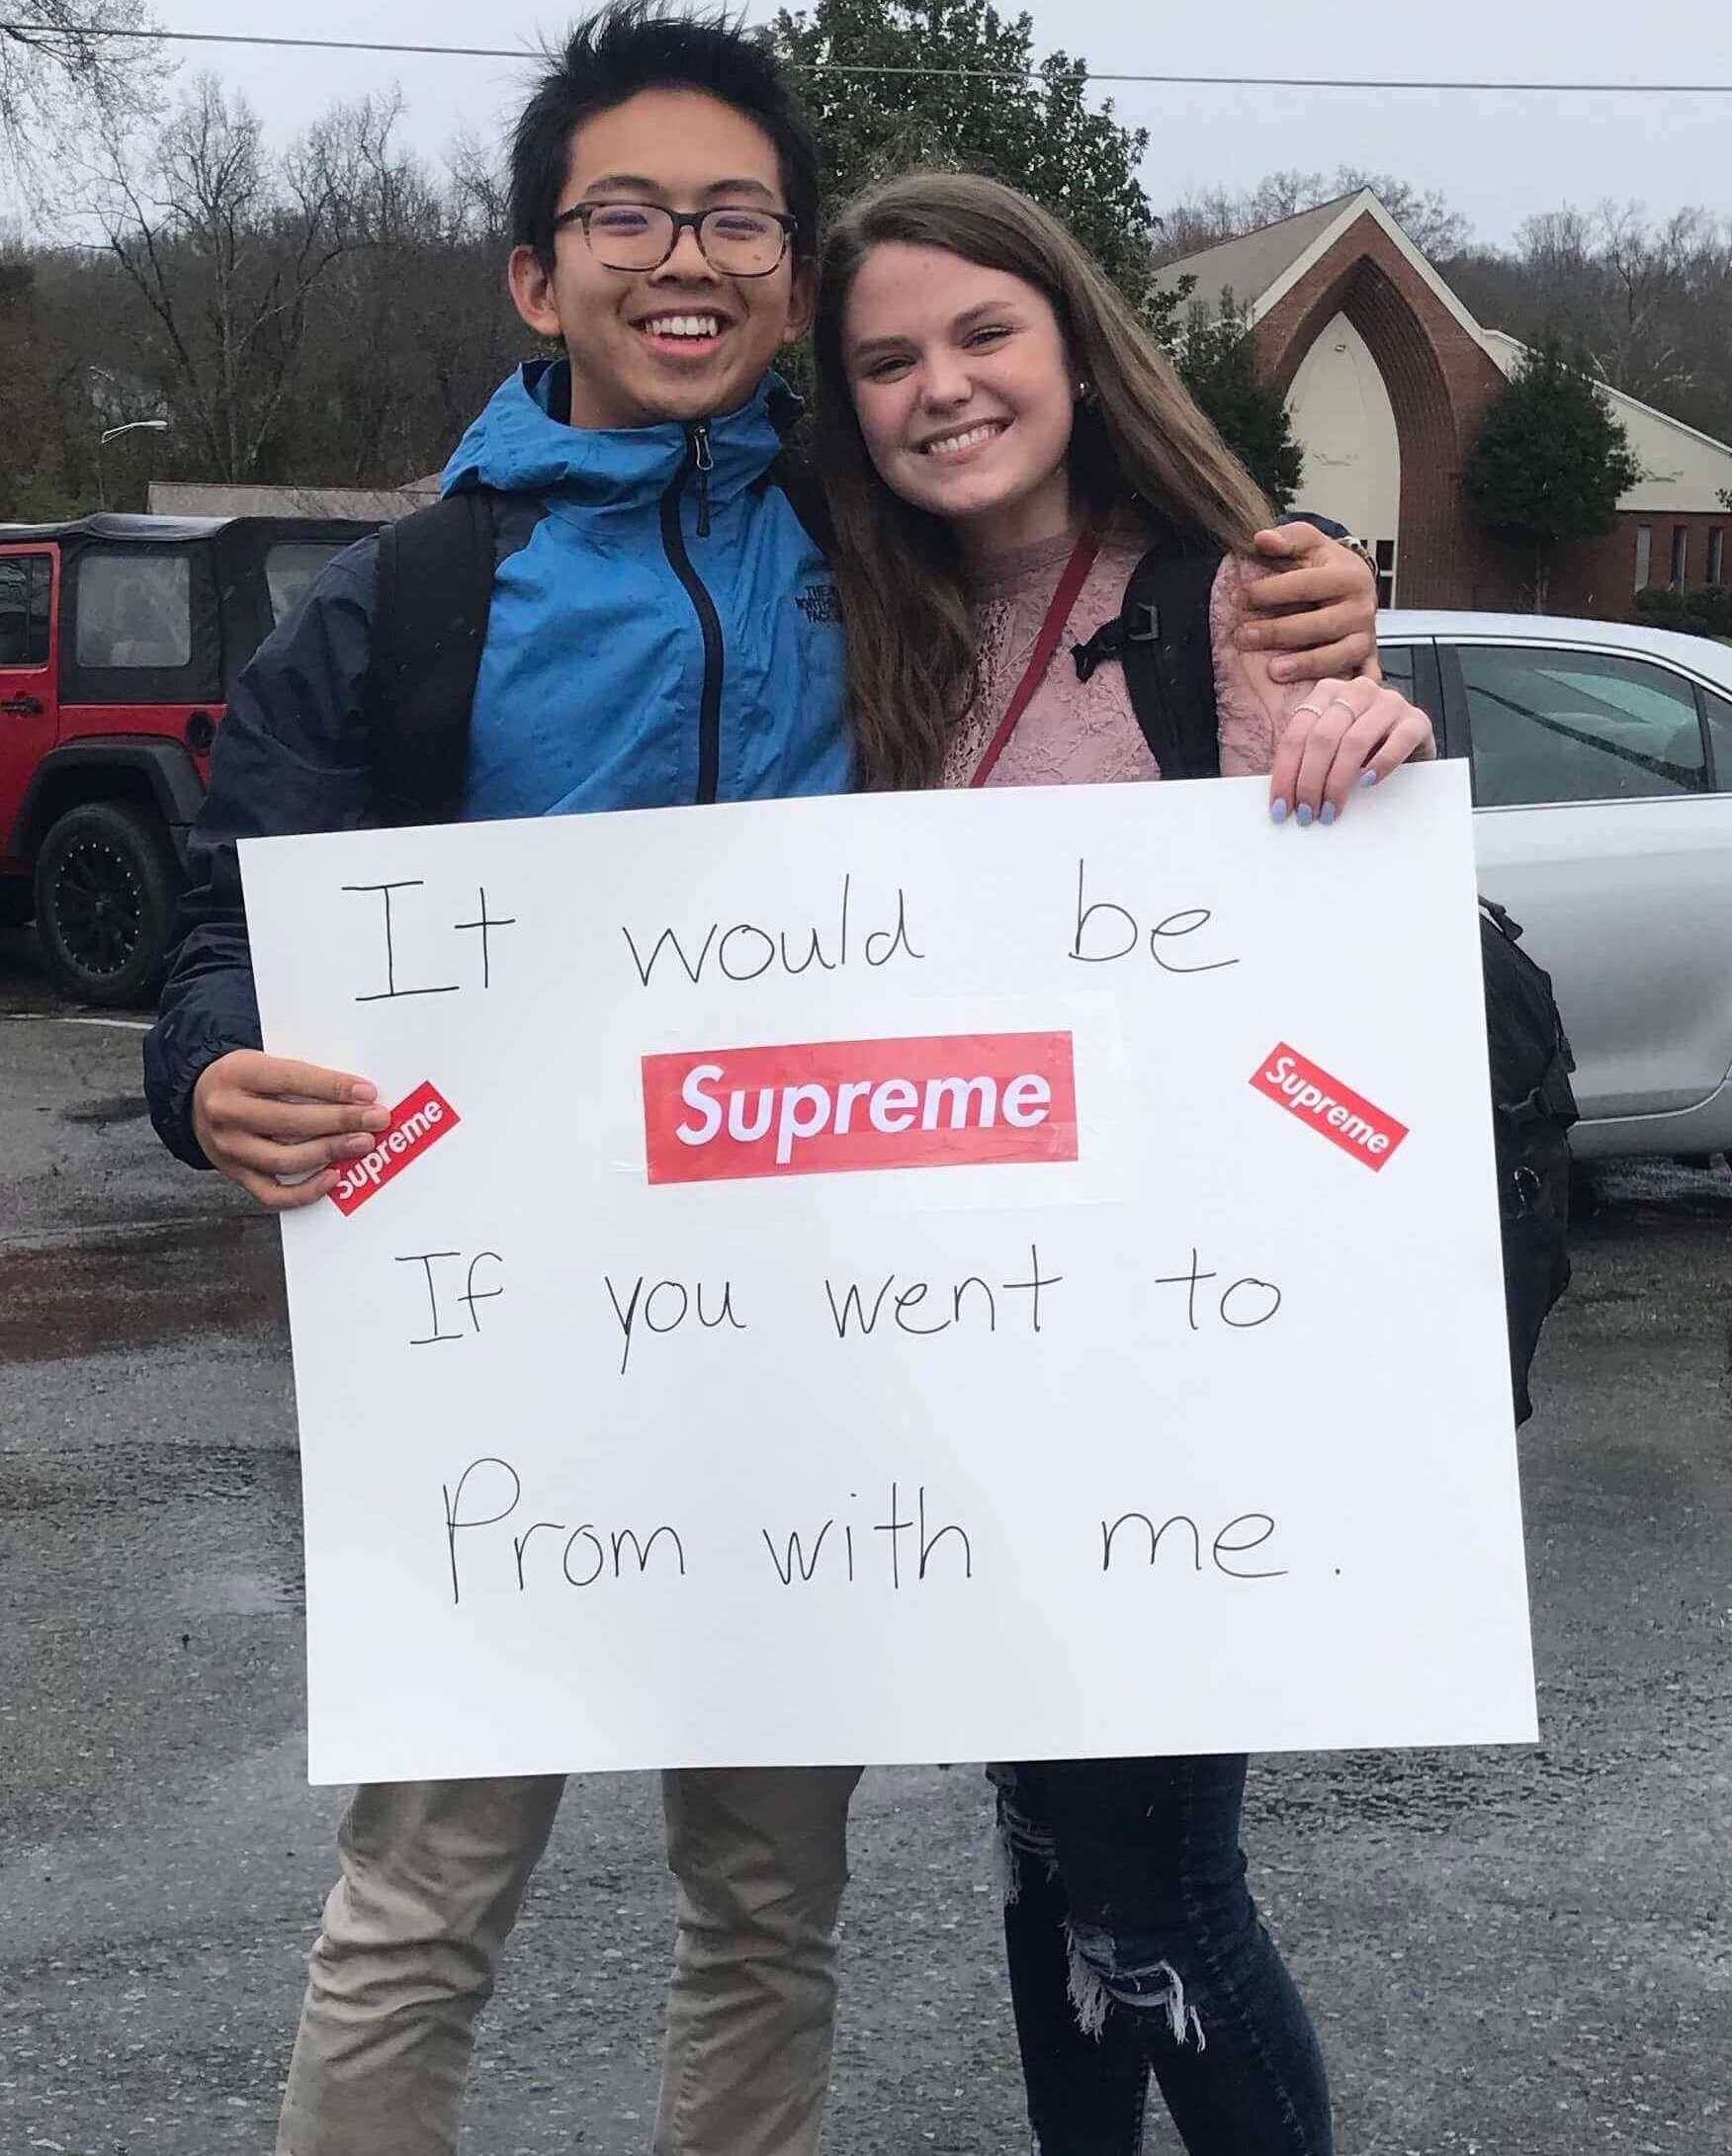 THE
NORTH
FACE
It would be
Supreme
Supreme
Supreme
If you went to
Prom with me.